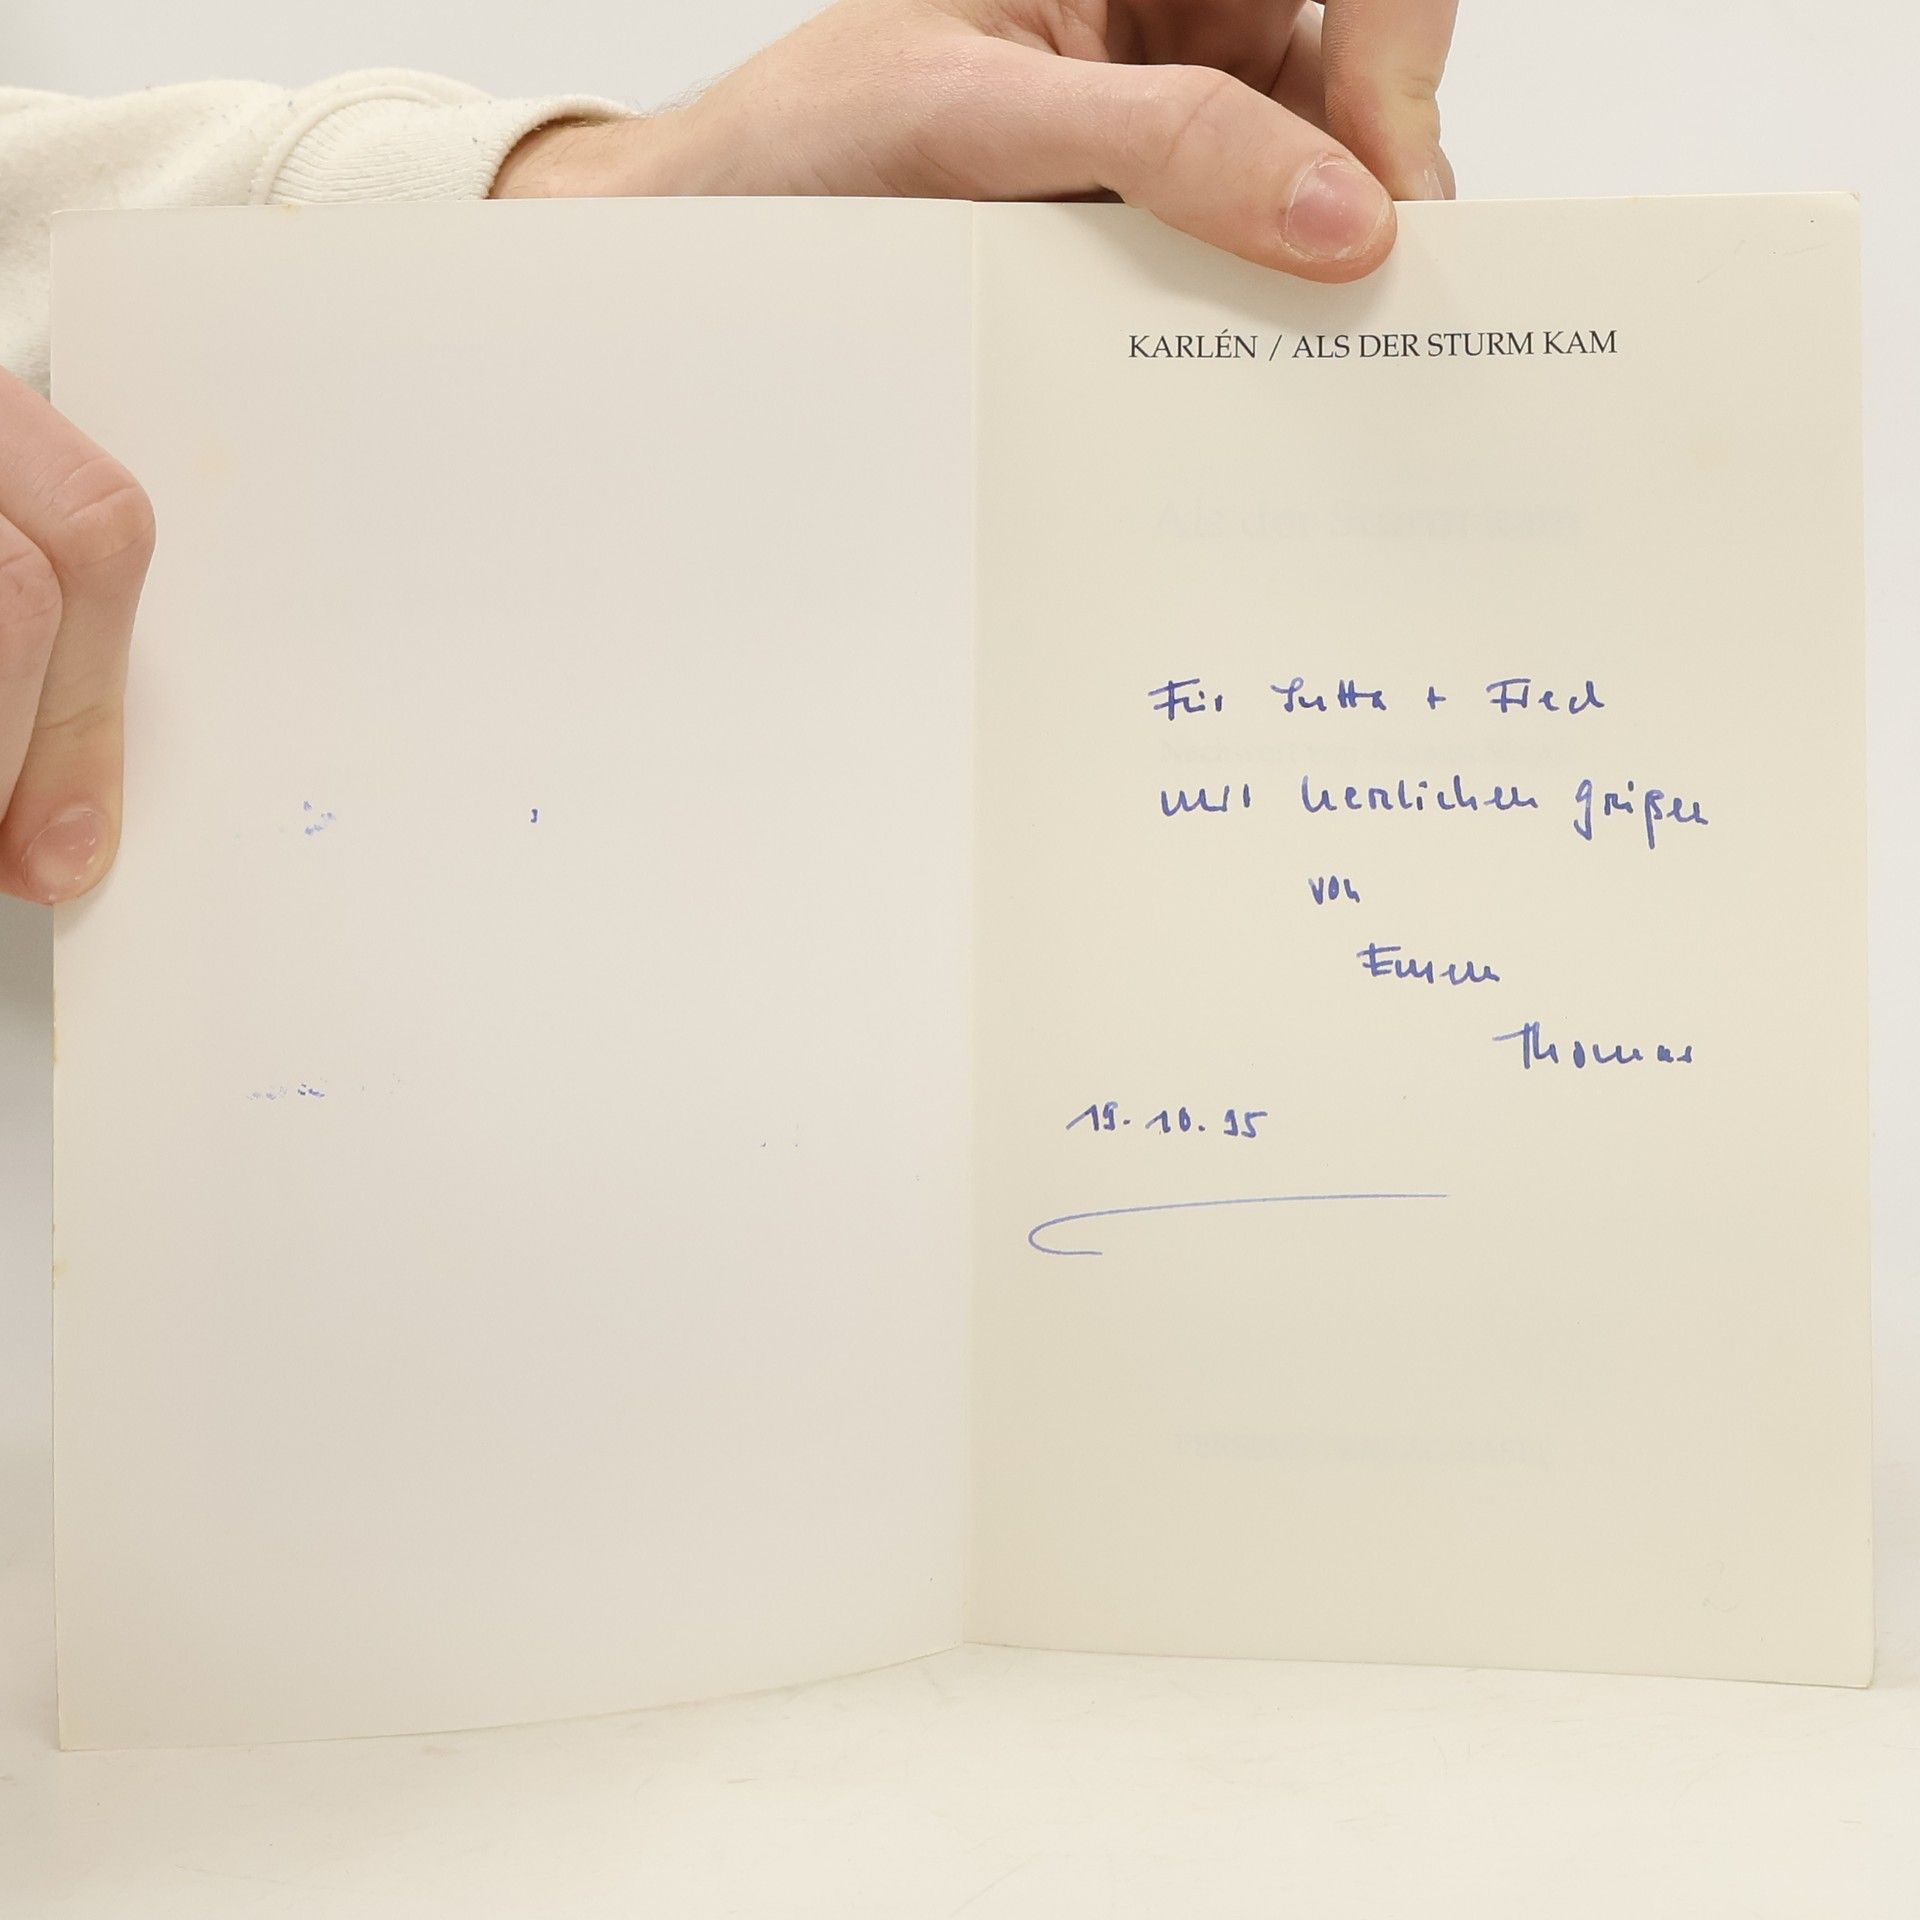 KARLÉN / ALS DER STURM KAM
Als der Sturm kam
Für Jutta + Fred
mit herzlichen Grüßen
von
Eurem
Thomas
19.10.95